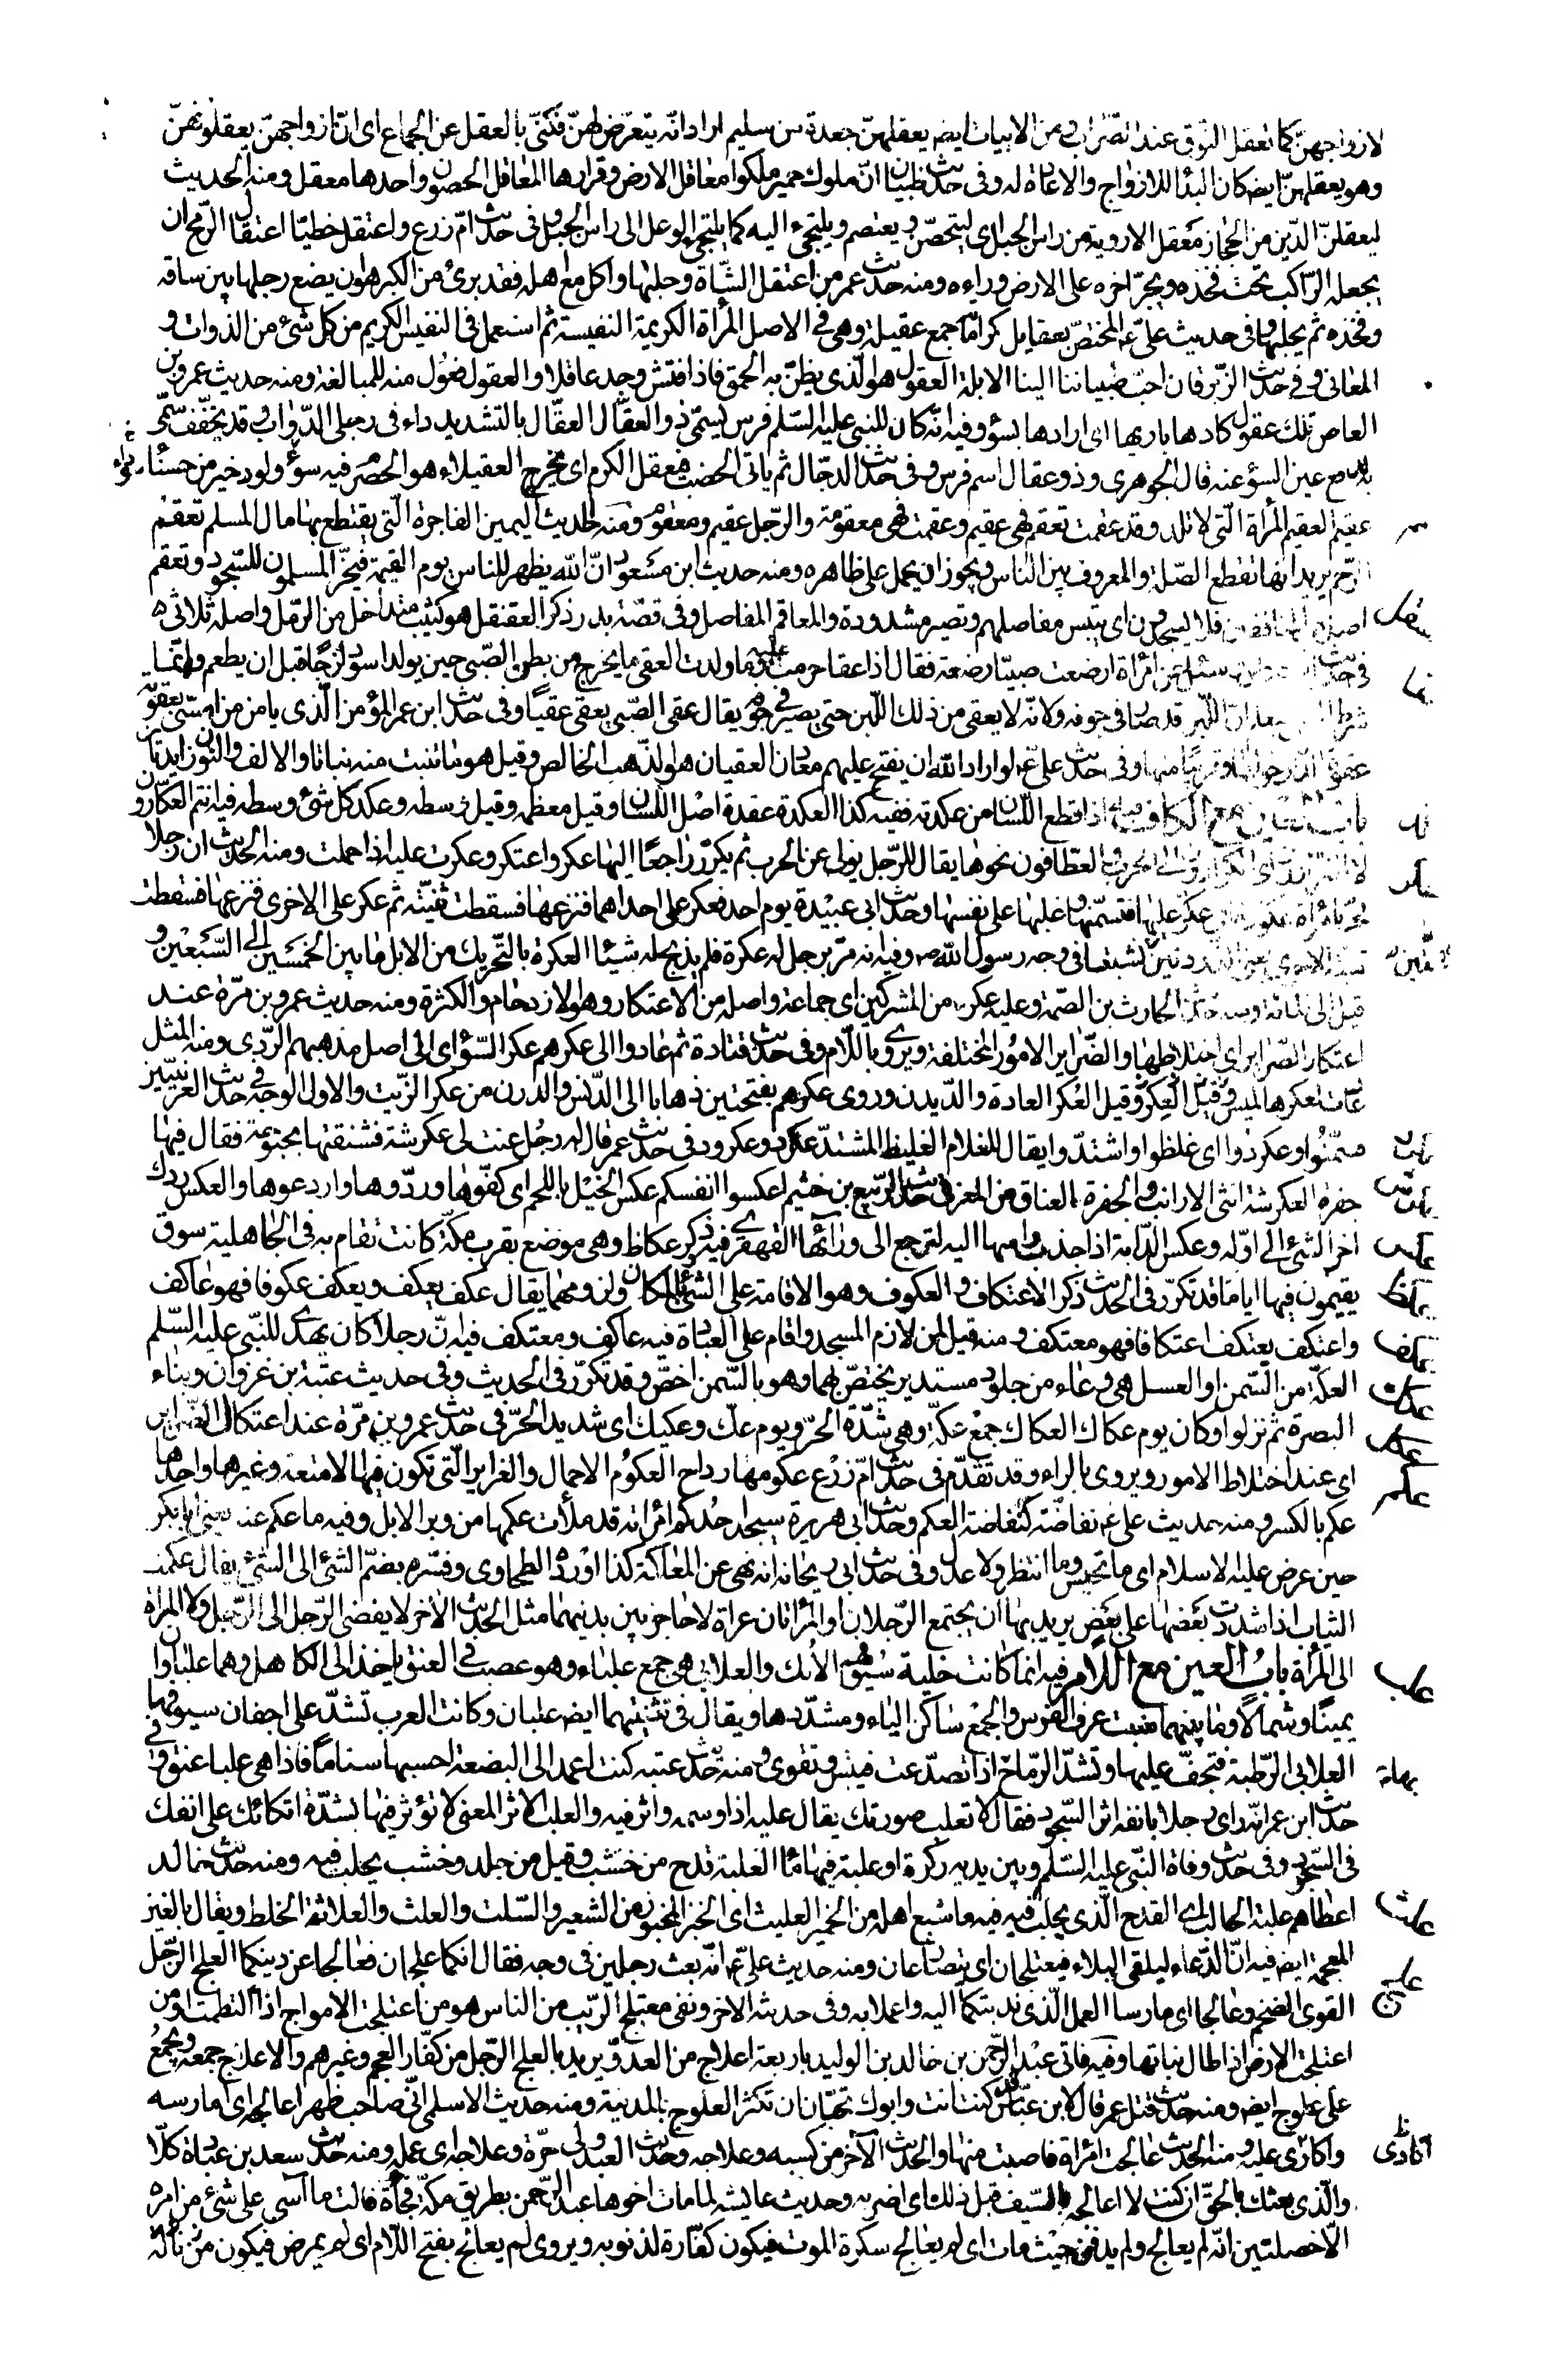 لازواجهنّ كما تعقل النوق عند الضراب ومن الابيات ايضه يعقلهنّ جعدة من سليم اراد انّه يتعرّض لهنّ فكنّى بالعقل عن الجماع اى انّ ازواجهنّ يعقلونهنّ
وهو يعقلهنّ ايضه كان البدأ للازواج والاعادة له وفى حديث ظبيان انّ ملوك حمير ملكوا معاقل الارض وقرارها المعاقل الحصون واحدها معقل ومنه الحديث
ليعقلنّ الدّين من الحجاز معقل الاروية من راس الجبل اى ليتحصّن ويعتصم ويلتجئ اليه كما يلتجئ الوعل الى راس الجبل وفى حديث امّ زرع واعتقل خطيّا اعتقال الرمح ان
يجعله الرّاكب تحت فخذه ويجرّ اخره على الارض وراءه ومنه حديث عمر من اعتقل الشّاة وحلبها واكل مع اهله فقد برئ من الكبر هو ان يضع رجلها بين ساقه
وفخذه ثم يحلبها وفى حديث علىّ ع المختصّ بعقايل كراماته جمع عقيلة وهى فى الاصل المرأة الكريمة النفيسة ثم استعمل فى النفيس الكريم من كل شئ من الذوات و
المعانى وفى حديث الزبرقان احبّ صبياننا الينا الابله العقول هو الّذى يظنّ به الحمق فاذا فتّش وجد عاقلا والعقول فعول منه للمبالغة ومنه حديث عمرو بن
العاص تلك عقول كادها باريها اى ارادها بسؤ وفيه انّه كان للنبى عليه السّلم فرس يسمّى ذو العقّال العقّال بالتشديد داء فى رجلى الدّوابّ وقد يخفّف سمّى
به لدفع عين السؤ عنه قال الجوهرى وذو عقال اسم فرس وفى حديث الدجّال ثم ياتى الخصب فيعقل الكرم اى يخرج العقيلاء هو الحصرم فيه سؤاء ولود خير من حسناء
عقيم العقيم المرأة الّتى لا تلد وقد عقمت تعقم فهى عقيم وعقمت فهى معقومة والرّجل عقيم ومعقوم ومنه الحديث اليمين الفاجرة الّتى يقتطع بها مال المسلم تعقم
الرّحم يريد انها تقطع الصّلة والمعروف بين الناس ويجوز ان يحمل على ظاهره ومنه حديث ابن مسعود انّ الله يظهر للناس يوم القيمة فيخرّ المسلمون للسّجود وتعقم
اصلاب المنافقين فلا يسجدون اى تيبس مفاصلهم وتصير مشدودة والمعاقم المفاصل وفى قصّة بدر ذكر العقنقل هو كثيب متداخل من الرّمل واصله ثلاثى
فى حديث سئل عن امرأة ارضعت صبيّا رضعة فقال اذا عقا حرمت عليه وما ولدت العقى ما يخرج من بطن الصّبى حين يولد اسود لزجًا قبل ان يطعم وانّما
شرط العقى ليعلم انّ اللّبن قد صار فى جوفه ولانّه لا يعقى من ذلك اللّبن حتى يصير فى جوفه يقال عقى الصّبى يعقى عقيًا وفى حديث ابن عمر المؤمن الّذى يامن من امسى بعقوته
عقوة الدّار حولها وقريبًا منها وفى حديث علىّ ع لو اراد الله ان يفتح عليهم معادن العقيان هو الذّهب الخالص وقيل هو ما ينبت منه نباتا والالف والنون زايدتان
باب العين مع الكاف فيه اذا قطع اللّسان من عكدته ففيه كذا العكدة عقدة اصل اللّسان وقيل معظمه وقيل وسطه وعكد كل شئ وسطه فيه انتم العكّارون
لا الفرّارون اى الكرّارون الى الحرب والعطّافون نحوها يقال للرّجل يولى عن الحرب ثم يكرّ راجعًا اليها عكر واعتكر وعكرت عليه اذا حملت ومنه الحديث ان رجلا
فجر بامرأة عكورة اى عكر عليها فتسنّمها وغلبها على نفسها وحديث ابى عبيدة يوم احد فعكر على احداهما فنزعها فسقطت ثنيّته ثم عكر على الاخرى فنزعها فسقطت
ثنيّته الاخرى يعنى الزّردتين اللتين نشبتا فى وجه رسول الله ص وفيه انه مرّ برجل له عكرة فلم يذبح له شيئا العكرة بالتّحريك من الابل ما بين الخمسين الى السّبعين و
قيل الى المائة ومنه حديث الحارث بن الصّمة وعليه عكر من المشركين اى جماعة واصله من الاعتكار وهو الازدحام والكثرة ومنه حديث عمرو بن مرّة عند
اعتكار الضّراير اى اختلاطها والضّراير الامور المختلفة ويروى باللّام وفى حديث قتادة ثم عادوا الى عكرهم عكر السّؤ اى الى اصل مذهبهم الرّدى ومنه المثل
عادت لعكرها لميس وقيل العكر وقيل العكر العادة والدّيدن وروى عكرهم بفتحتين ذهابا الى الدّنس والدّرن من عكر الزّيت والاول الوجه فى حديث العرنيين
سمنوا وعكردوا اى غلظوا واشتدّوا يقال للغلام الغليظ المشتدّ عكرد وعكرود فى حديث عمر قال له رجل عنت لى عكرشة فشنقتها بجبوبة فقال فيها
جفرة العكرشة انثى الارانب والجفرة العناق من المعز فى حديث الرّبيع بن خثيم اعكسوا انفسكم عكس الخيل باللجم اى كفّوها وردّوها واردعوها والعكس ردّك
اخر الشئ الى اوّله وعكس الدّابة اذا جذب راسها اليه لترجع الى ورائها القهقرى فيه ذكر عكاظ وهى موضع بقرب مكّة كانت تقام به فى الجاهلية سوق
يقيمون فيها اياما قد تكرّر فى الحديث ذكر الاعتكاف والعكوف وهو الاقامة على الشئ بالمكان ولزومهما يقال عكف يعكف ويعكف عكوفا فهو عاكف
واعتكف يعتكف اعتكافا فهو معتكف ومنه قيل لمن لازم المسجد واقام على العبادة فيه عاكف ومعتكف فيه انّ رجلا كان يهدى للنّبى عليه السّلم
العكّة من السّمن او العسل هى وعاء من جلود مستدير يختصّ بهما وهو بالسّمن اخصّ وقد تكرّر فى الحديث وفى حديث عتبة بن غزوان وبناء
البصرة ثم نزلوا وكان يوم عكاك العكاك جمع عكّة وهى شدّة الحرّ ويوم عكّ وعكيك اى شديد الحرّ فى حديث عمرو بن مرّة عند اعتكال الضّراير
اى عند اختلاط الامور ويروى بالراء وقد تقدّم فى حديث امّ زرع عكومها رداح العكوم الاحمال والغراير الّتى تكون فيها الامتعة وغيرها واحدها
عكم بالكسر ومنه حديث علىّ ع نفاضة كنفاضة العكم وحديث ابى هريرة سيجد احدكم امرأته قد ملأت عكمها من وبر الابل وفيه ما عكم عنه يعنى ابا بكر
حين عرض عليه الاسلام اى ما تحبّس وما انتظر ولا عدل وفى حديث ابى ريحانة انه نهى عن المعاكمة كذا اورده الطحاوى وفسّره بضمّ الشئ الى الشئ يقال عكمت
الثياب اذا شددت بعضها على بعض يريد بها ان يجتمع الرّجلان او المرأتان عراة لا حاجز بين بدنيهما مثل الحديث الآخر لا يفضى الرّجل الى الرّجل ولا المرأة
الى المرأة باب العين مع اللام فيه انما كانت حلية سيوفهم الآنك والعلابى هى جمع علباء وهو عصب فى العنق ياخذ الى الكاهل وهما علباوان
يمينًا وشمالًا وما بينهما منبت عرف الفرس والجمع ساكن الياء ومشدّدها ويقال فى تثنيتهما ايضه علبان وكانت العرب تشدّ على اجفان سيوفها
العلابى الرّطبة فتجفّ عليها وتشدّ الرّماح اذا تصدّعت فتيبس وتقوى ومنه حديث عتبه كنت اعمد الى البضعة احسبها سنامًا فاذا هى علباء عنق وفى
حديث ابن عمر انّه راى رجلا بانفه اثر السّجود فقال لا تعلب صورتك يقال عليه اذا وسمه واثر فيه والعلب الاثر المعنى لا تؤثر فيها بشدّة اتكائك على انفك
فى السّجود وفى حديث وفاة النّبى عليه السّلم وبين يديه ركوة او علبة فيها ماء العلبة قدح من خشب وقيل من جلد وخشب يحلب فيه ومنه حديث خالد
اعطاهم علبة الحالب اى القدح الّذى يحلب فيه فيه ما شبع اهله من الخمير العليث اى الخبز المخبوز من الشعير والسّلت والعلث والعلاثة الخلط ويقال بالغين
المعجمة ايضه فيه انّ الدّعاء ليلقى البلاء فيعتلجان اى يتصارعان ومنه حديث علىّ ع انّه بعث رجلين فى وجه فقال انكما علجان فعالجا عن دينكما العلج الرّجل
القوى الضخم وعالجا اى مارسا العمل الّذى ندبتكما اليه واعملا به وفى حديثه الاخر ونفى معتلج الرّيب من الناس هو من اعتلجت الامواج اذا التطمت او من
اعتلجت الارض اذا طال نباتها وفيه فاتى عبد الرّحمن بن خالد بن الوليد باربعة اعلاج من العدوّ يريد بالعلج الرّجل من كفّار العجم وغيرهم والاعلاج جمعه ويجمع
على علوج ايضه ومنه حديث قتل عمر قال لابن عبّاس قد كنت انت وابوك تحبّان ان تكثر العلوج بالمدينة ومنه حديث الاسلمى انّى صاحب ظهر اعالجه اى امارسه
واكارى عليه ومنه الحديث عالجت امرأة فاصبت منها والحديث الآخر من كسبه وعلاجه وحديث العبد ولى حرّه وعلاجه اى عمله ومنه حديث سعد بن عبادة كلّا
والّذى بعثك بالحقّ ان كنت لاعالجه بالسّيف قبل ذلك اى اضربه وحديث عايشه لما مات اخوها عبد الرّحمن بطريق مكّة فجأة قالت ما آسى على شئ من امره
الّا خصلتين انّه لم يعالج ولم يدفن حيث مات اى لم يعالج سكرة الموت فيكون كفّارة لذنوبه ويروى لم يعالج بفتح اللّام اى لم يمرض فيكون من ناله